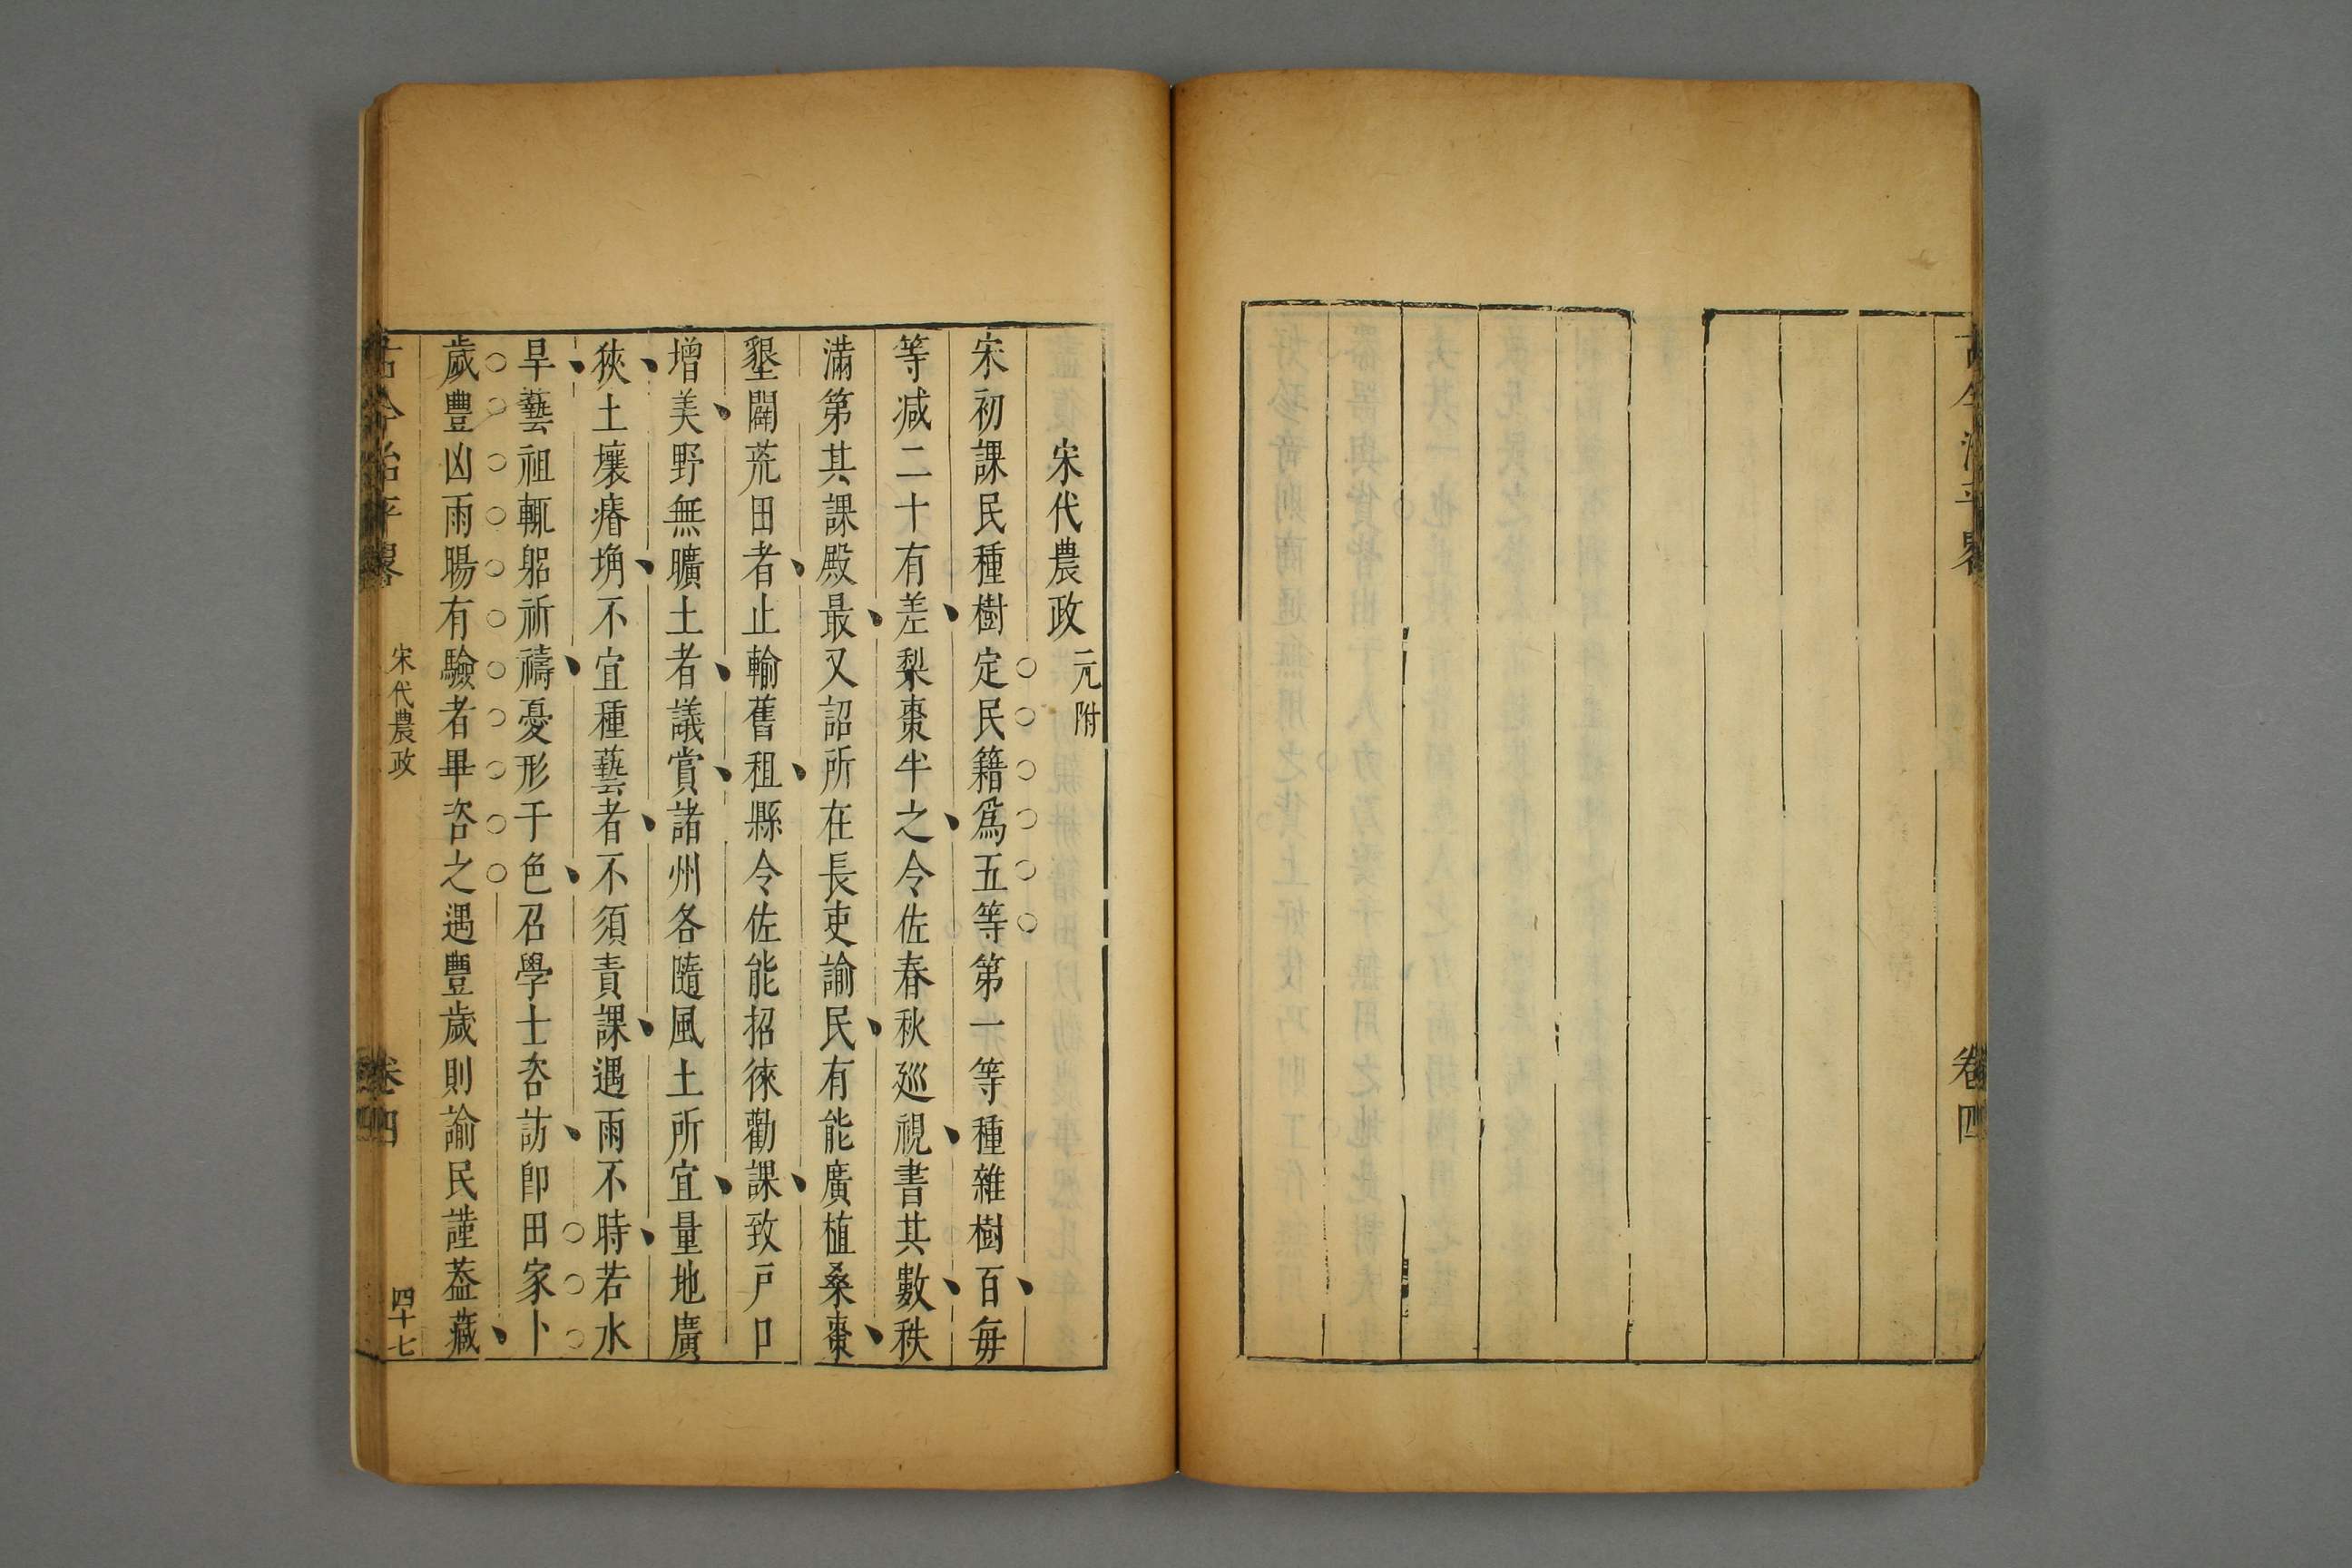 古今治平畧
卷四
宋代農政 元附
宋初課民種樹定民籍爲五等第一等種雜樹百每
等减二十有差梨棗半之令佐春秋廵視書其數秩
滿第其課殿最又詔所在長吏諭民有能廣植桑棗
墾闢荒田者止輸舊租縣令佐能招徠勸課致戸口
增美野無曠土者議賞諸州各隨風土所宜量地廣
狹土壤瘠埆不宜種藝者不須責課遇雨不時若水
旱藝祖輒躬祈禱憂形于色召學士咨訪卽田家卜
歲豐凶雨暘有驗者畢咨之遇豐歲則諭民謹葢藏
古今治平畧
宋代農政
卷四
四十七